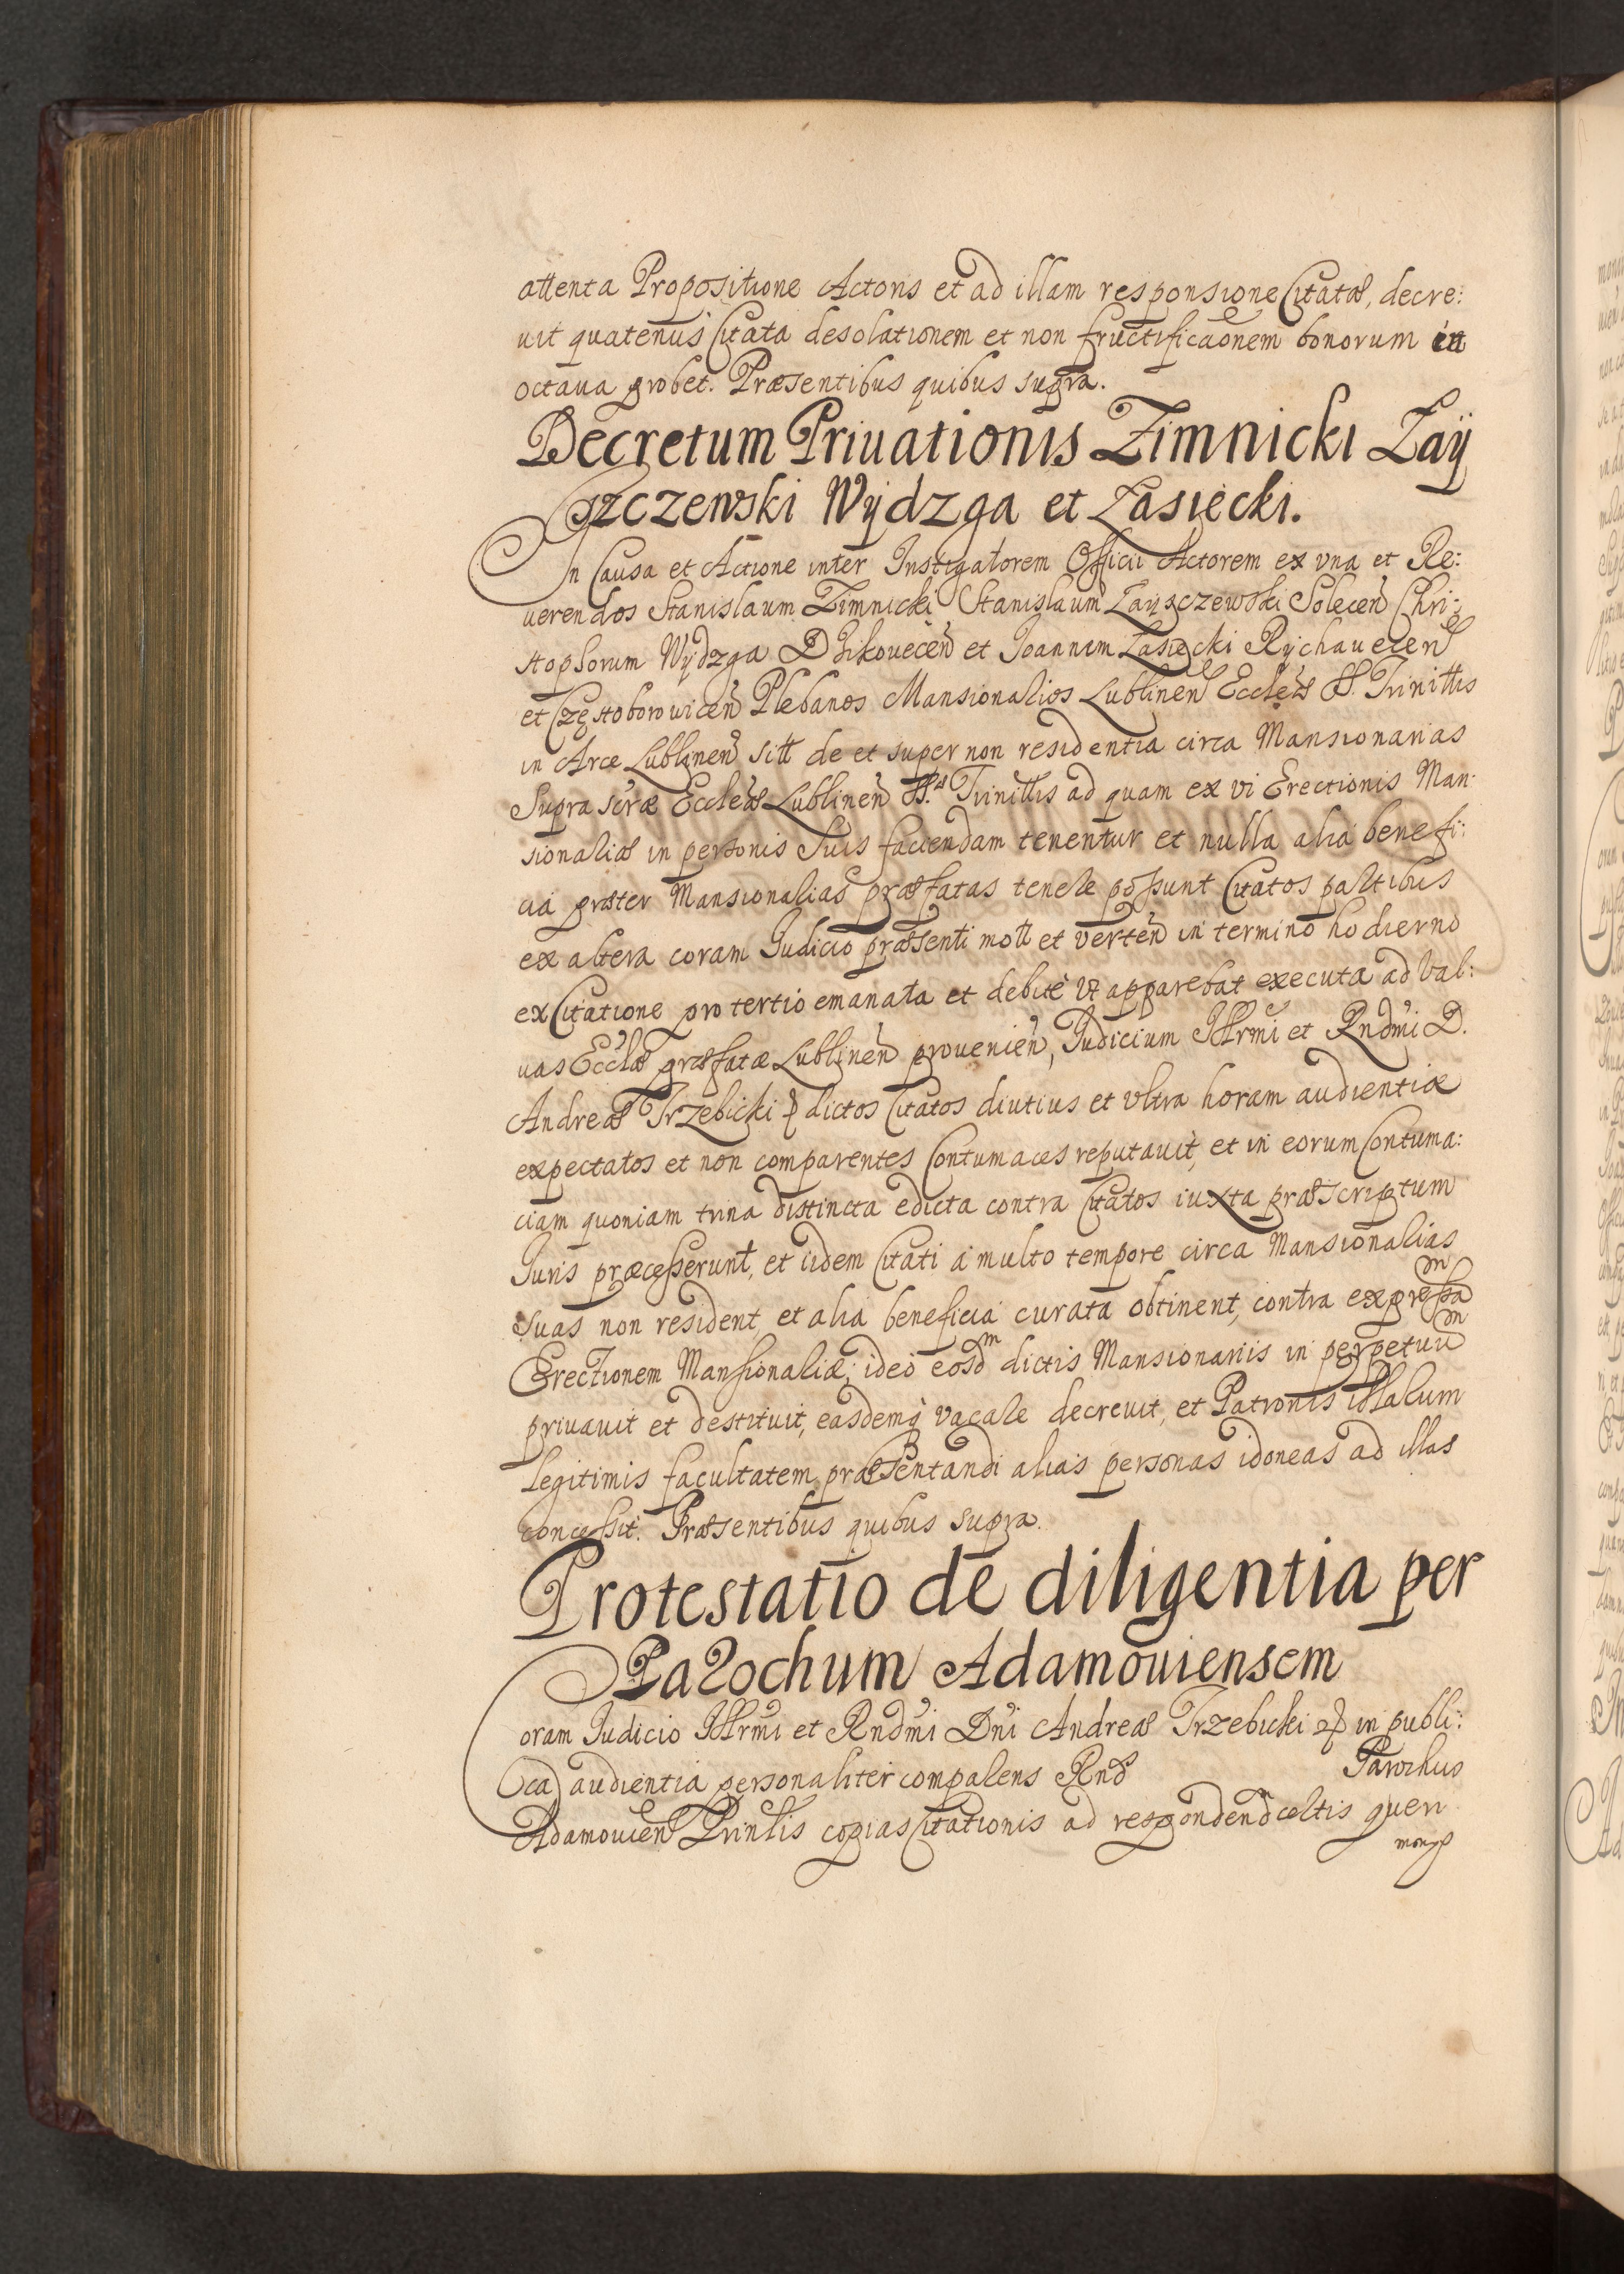 attenta Propositione Actoris et ad illam responsione Citatæ, decre:
uit quatenus Citata desolationem et non fructificãonem bonorum in
octaua probet. Præsentibus quibus supra.
Decretum Priuationis Zimnicki Zaÿ
szczewski Wÿdzga et Zasiecki.
In Causa et Actione inter Instigatorem Officii Actorem ex vna et Re:
uerendos Stanislaum Zimnicki Stanislaum Zaÿszczewski Solecen̄ Chri:
stophorum Wÿdzga et Joannem Zasiecki Rÿchauecen̄
et Częstoborouicen̄ Plebanos Mansionarios Lublinen̄ Eccleæ SS. Trinittis
in Arce Lublinen̄ sitt de et super non residentia circa Mansionarias
Supra scræ Eccleæ Lublinen̄ SS. Trinittis ad quam ex vi Erectionis Man:
sionariæ in personis suis faciendam tenentur et nulla alia benefi:
cia præter Mansionarias præfatas tenere possunt Citatos partibus
ex altera coram Judicio præsenti mott et verten̄ in termino hodierno
ex Citatione pro tertio emanata et debite vt apparebat executa ad Val:
uas Ecclæ præfatæ Lublinen̄ prouenien̄, Judicium Illrmi et Rndmi D.
Andreæ Trzebicki dictos Citatos diutius et vltra horam audientiæ
expectatos et non comparentes Contumaces reputauit, et in eorum Contuma:
ciam quoniam trina distincta edicta contra Citatos iuxta præscriptum
Juris præcesserunt, et iidem Citati a multo tempore circa Mansionarias
suas non resident, et alia beneficia curata obtinent, contra expressam
Erectionem Mansionariæ; ideo eosdm dictis Mansionariis in perpetuum
priuauit et destituit, easdemq vacare decreuit, et Patronis illarum
legitimis facultatem præsentandi alias personas idoneas ad illas
concessit. Præsentibus quibus supra.
Protestatio de diligentia per
Parochum Adamouiensem
Coram Judicio Illrmi et Rndmi Dni Andreæ Trzebicki in publi:
ca audientia personaliter comparens Rnd Parochus
Adamouien̄ Prinlis copias Citationis ad respondend certis quen